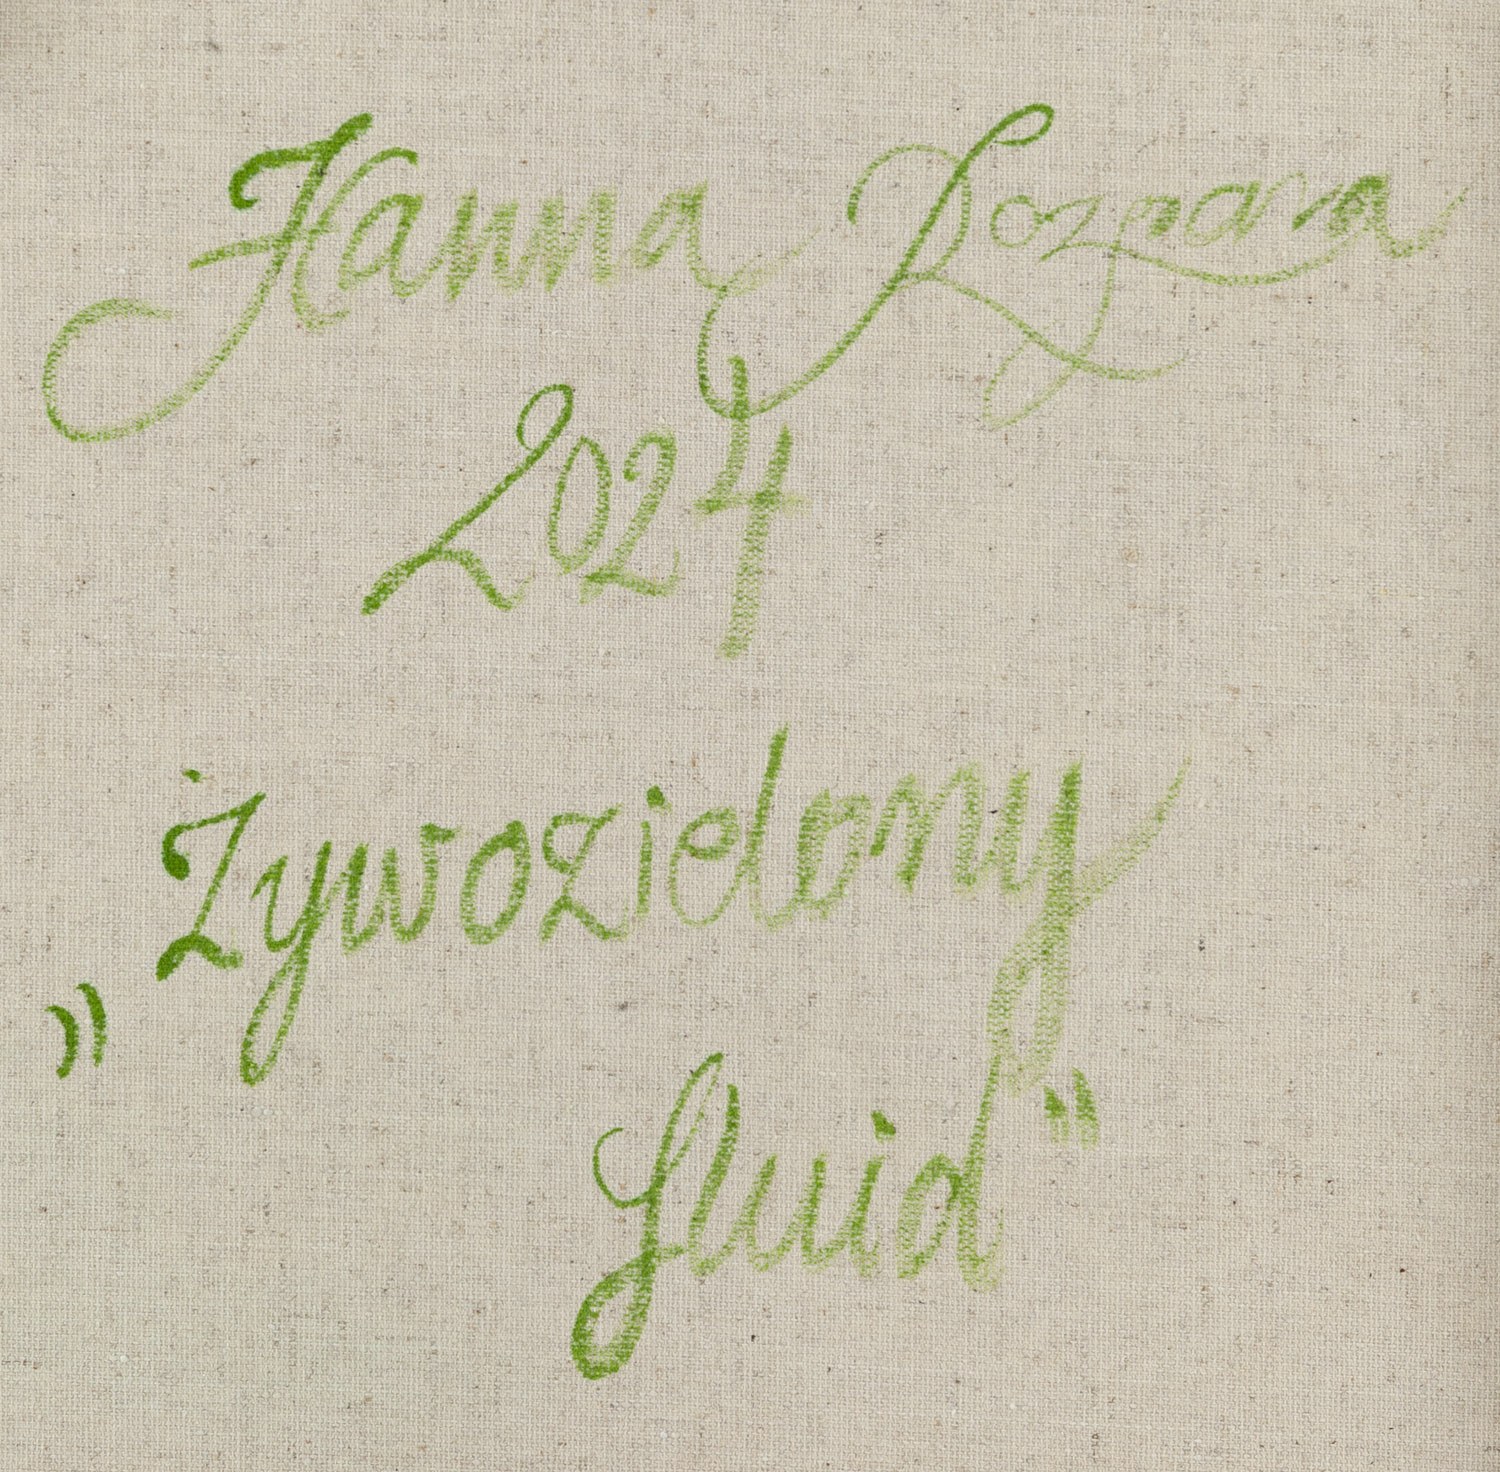 Hanna Rozpara
2024
„Żywozielony
fluid”